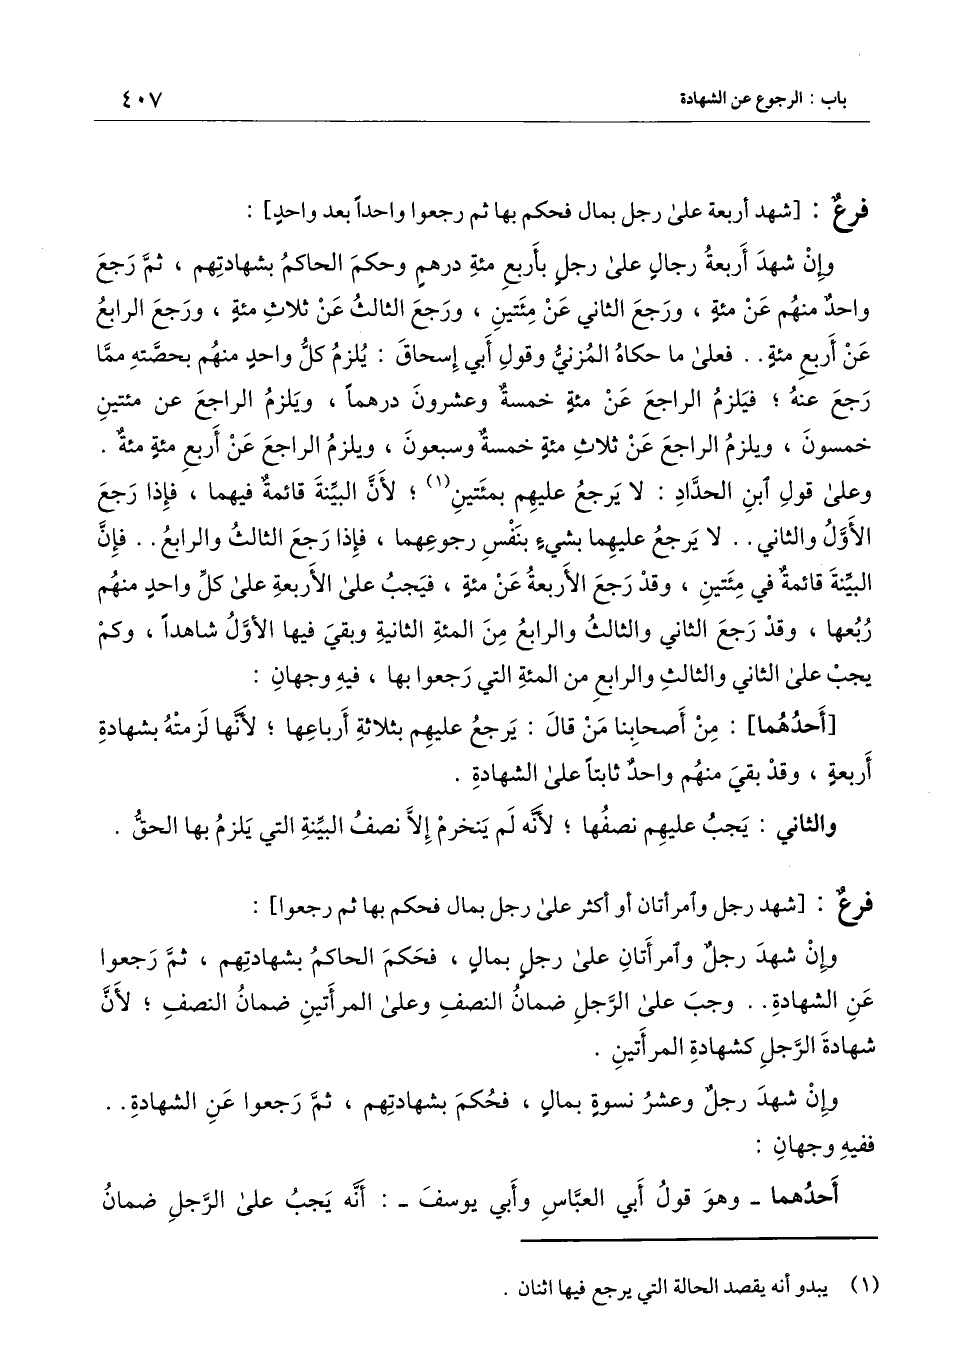 باب : الرجوع عن الشهادة ٤٠٧
فرعٌ : [شهد أربعة علىٰ رجل بمال فحكم بها ثم رجعوا واحداً بعد واحدٍ] :
وإِنْ شهدَ أَربعةُ رجالٍ علىٰ رجلٍ بأَربعِ مئةِ درهمٍ وحكمَ الحاكمُ بشهادتِهم ، ثمَّ رَجعَ
واحدٌ منهُم عَنْ مئةٍ ، ورَجعَ الثاني عَنْ مِئَتينِ ، ورَجعَ الثالثُ عَنْ ثلاثِ مئةٍ ، ورَجعَ الرابعُ
عَنْ أَربعِ مئةٍ . . فعلىٰ ما حكاهُ المُزنيُّ وقولِ أَبي إِسحاقَ : يُلزمُ كلُّ واحدٍ منهُم بحصَّتهِ ممَّا
رَجعَ عنهُ ؛ فيَلزمُ الراجعَ عَنْ مئةٍ خمسةٌ وعشرونَ درهماً ، ويَلزمُ الراجعَ عن مئتينِ
خمسونَ ، ويلزمُ الراجعَ عَنْ ثلاثِ مئةٍ خمسةٌ وسبعونَ ، ويلزمُ الراجعَ عَنْ أَربعِ مئةٍ مئةٌ .
وعلىٰ قولِ ٱبنِ الحدَّادِ : لا يَرجعُ عليهِم بمئَتينِ(١) ؛ لأَنَّ البيِّنةَ قائمةٌ فيهما ، فإِذا رَجعَ
الأَوَّلُ والثاني . . لا يَرجعُ عليهما بشيءٍ بنَفْسِ رجوعِهما ، فإِذا رَجعَ الثالثُ والرابعُ . . فإِنَّ
البيِّنةَ قائمةٌ في مِئتَينِ ، وقدْ رَجعَ الأَربعةُ عَنْ مئةٍ ، فيَجبُ علىٰ الأَربعةِ علىٰ كلِّ واحدٍ منهُم
رُبُعها ، وقدْ رَجعَ الثاني والثالثُ والرابعُ مِنَ المئةِ الثانيةِ وبقيَ فيها الأَوَّلُ شاهداً ، وكمْ
يجبُ علىٰ الثاني والثالثِ والرابعِ من المئةِ التي رَجعوا بها ، فيهِ وجهانِ :
[أَحدُهُما] : مِنْ أَصحابِنا مَنْ قالَ : يَرجعُ عليهِم بثلاثةِ أَرباعِها ؛ لأَنَّها لَزمتْهُ بشهادةِ
أَربعةٍ ، وقدْ بقيَ منهُم واحدٌ ثابتاً علىٰ الشهادةِ .
والثاني : يَجبُ عليهِم نصفُها ؛ لأَنَّه لَم يَنخرمْ إِلاَّ نصفُ البيِّنةِ التي يَلزمُ بها الحقُّ .
فرعٌ : [شهد رجل وٱمرأتان أو أكثر علىٰ رجل بمال فحكم بها ثم رجعوا] :
وإِنْ شهدَ رجلٌ وٱمرأَتانِ علىٰ رجلٍ بمالٍ ، فحَكمَ الحاكمُ بشهادتِهم ، ثمَّ رَجعوا
عَنِ الشهادةِ . . وجبَ علىٰ الرَّجلِ ضمانُ النصفِ وعلىٰ المرأَتينِ ضمانُ النصفِ ؛ لأَنَّ
شهادةَ الرَّجلِ كشهادةِ المرأَتينِ .
وإِنْ شهدَ رجلٌ وعشرُ نسوةٍ بمالٍ ، فحُكمَ بشهادتِهم ، ثمَّ رَجعوا عَنِ الشهادةِ . .
ففيهِ وجهانِ :
أَحدُهما ـ وهوَ قولُ أَبي العبَّاسِ وأَبي يوسفَ ـ : أَنَّه يَجبُ علىٰ الرَّجلِ ضمانُ
(١) يبدو أنه يقصد الحالة التي يرجع فيها اثنان .